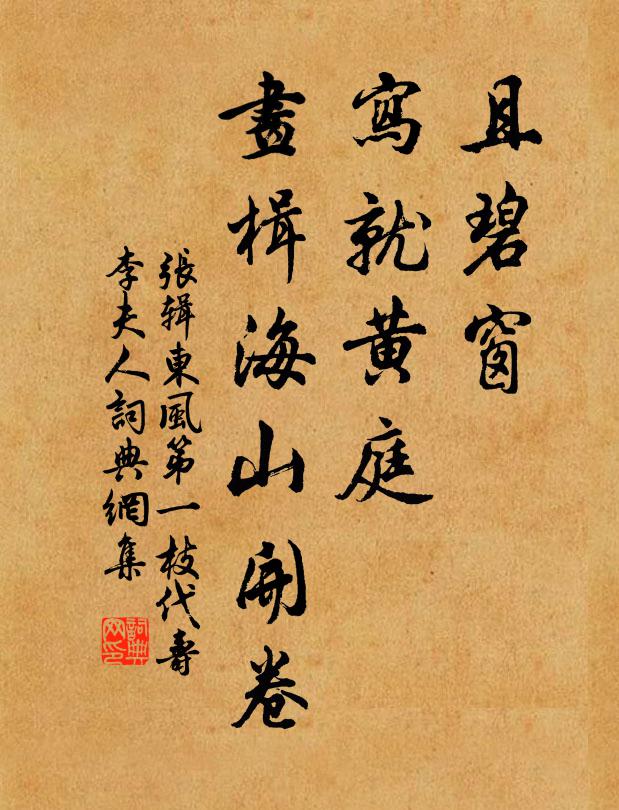 且碧窗
寫就黃庭
畫楫海山開卷
張輯東風第一枝代壽
李夫人詞典網集
詞典
网印